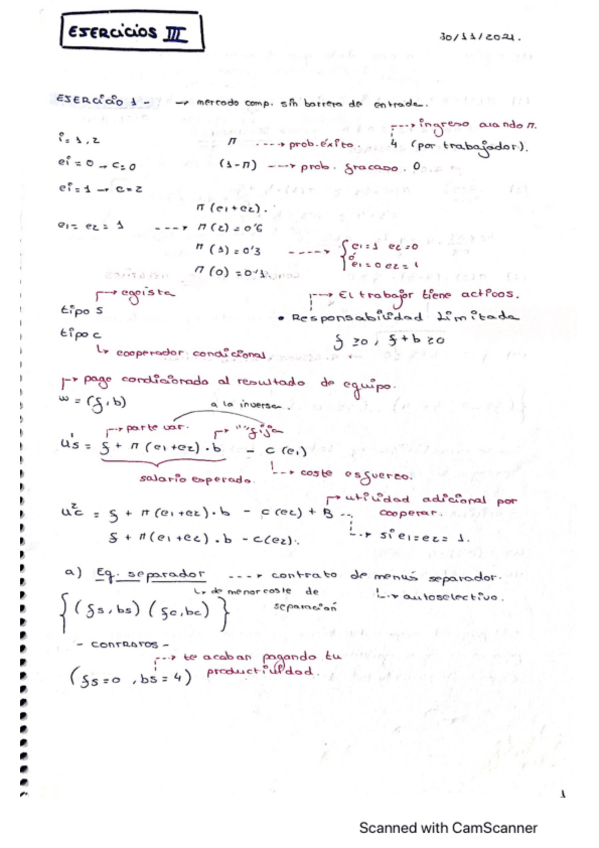 EJERCICIOS III
30/11/2021.
EJERCICIO 1 - → mercado comp. sin barrera de entrada.
→ ingreso cuando π.
i = 1, 2 π → prob. éxito. 4 (por trabajador).
ei = 0 → c = 0 (1-π) → prob. fracaso. 0
ei = 1 → c = 2
π (e1 + e2).
e1 = e2 = 1 → π (2) = 0'6
π (1) = 0'3 → { e1 = 1 e2 = 0
ó e1 = 0 e2 = 1
π (0) = 0'1
→ egoísta → El trabajor tiene activos.
tipo S • Responsabilidad Limitada
tipo C f ≥ 0, f + b ≥ 0
↳ cooperador condicional
→ pago condicionado al resultado de equipo.
w = (f, b) a la inversa.
→ parte var. → " " fija
u¹s = f + π (e1 + e2) · b - c (e1)
salario esperado. ↳ coste esfuerzo.
→ utilidad adicional por
cooperar.
u²c = f + π (e1 + e2) · b - c (e2) + B
↳ si e1 = e2 = 1.
f + π (e1 + e2) · b - c (e2).
a) Eq. separador → contrato de menús separador.
↳ de menor coste de separación ↳ autoselectivo.
{ (fs, bs) (fc, bc) }
- contratos -
→ te acaban pagando tu
productividad.
(fs = 0, bs = 4)
1
Scanned with CamScanner